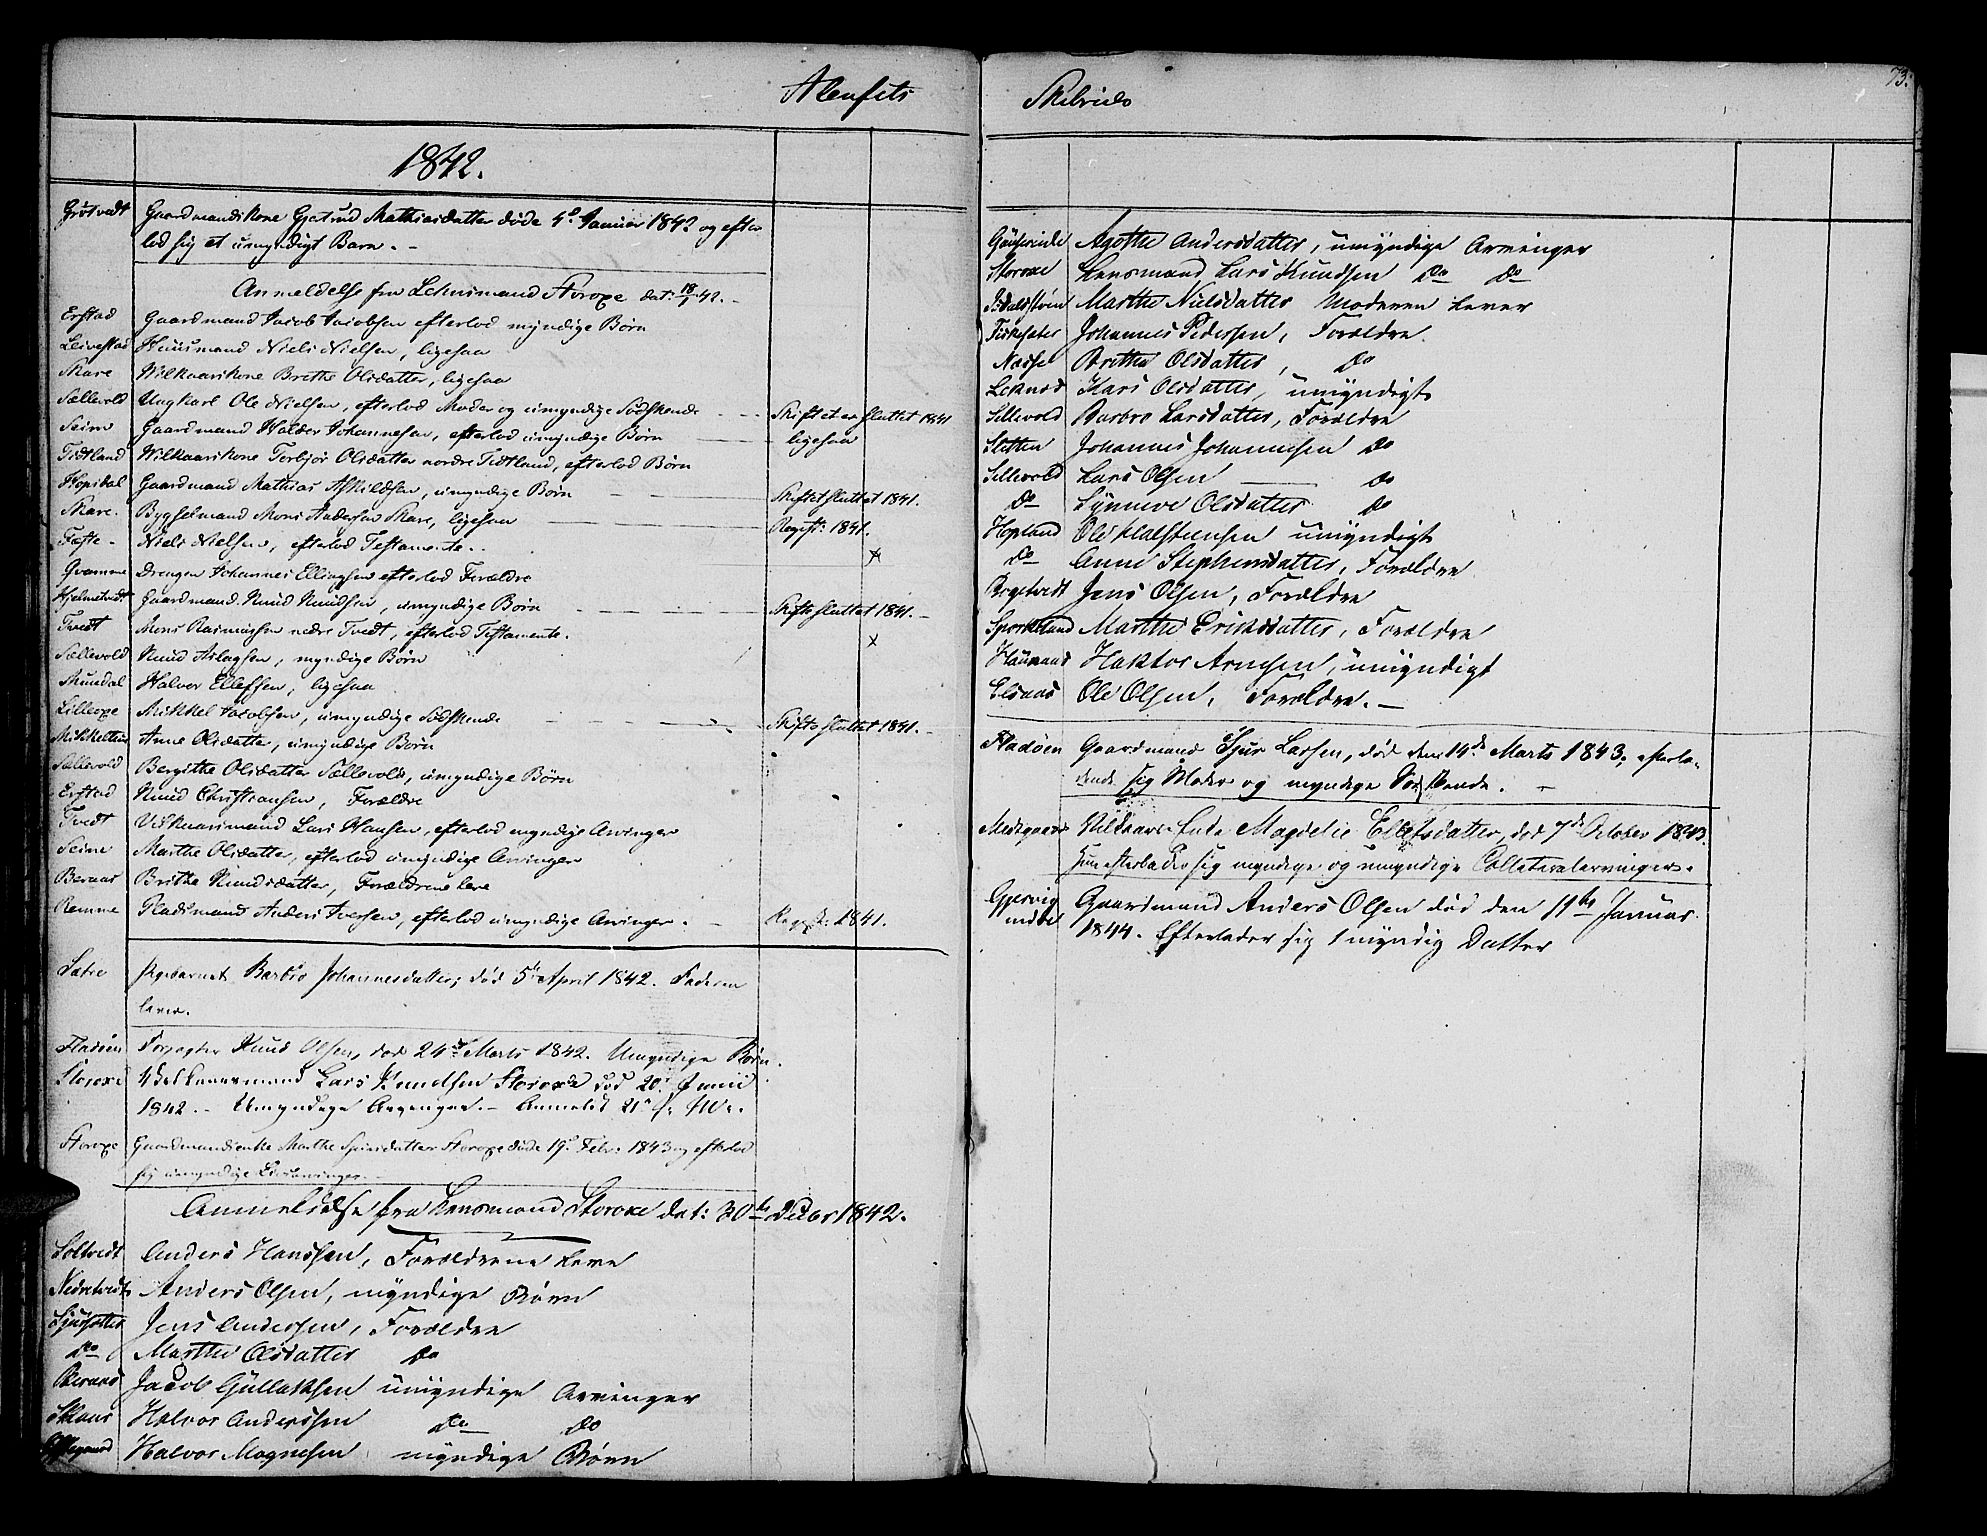 Alenfits
1842.
Grötvedt Gaardmandskone Gjertrud Mathiasdatter døde 4de Januar 1842 og efter
lod sig et umyndigt Barn. -
Anmeldelse fra Lehnsmand Storoxe dat: 18/1 42. -
Erstad Gaardmand Jacob Jacobsen efterlod myndige Børn
Leivestad Huusmand Niels Nielsen, ligesaa
Mare Wilkaarskone Brethe Olsdatter, ligesaa
Sællevold Ungkarl Ole Nielsen, efterlod Moder og umyndige Södskende - - Skiftet er sluttet 1841
Seim Gaardmand Halder Johannesen, efterlod umyndige Børn - ligesaa
Tidtland Wilkaarskone Torbjør Olsdatter nordre Tidtland, efterlod Börn
Hopsdal Gaardmand Mathias Askildsen, umyndige Børn - - Skiftet sluttet 1841.
Skare. Bygselmand Mons Andersen Skare, ligesaa - Registr: 1841.
Tofte - Niels Nielsen, efterlod Testamente. -
Qvamme Drengen Johannes Ellingsen efterlod Forældre
Hjelmtvedt Gaardmand Knud Knudsen, umyndige Børn - - Skifte sluttet 1841. -
Tvedt Mons Rasmussen nedre Tvedt, efterlod Testamente.
Sællevold Knud Aslagsen, myndige Börn
Mundal Halvor Ellefsen, ligesaa
Lilleoxe Mikkel Jacobsen, umyndige Södskende - - Skifte sluttet 1841. -
Anne Olsdatter, umyndige Börn
Sællevold Bergithe Olsdatter Sællevold, umyndige Börn
Erstad Knud Christiansen, Forældre
Tvedt Vilkaarsmand Lars Hansen, efterlod myndige Arvinger
Seime Marthe Olsdatter, efterlod umyndige Arvinger
Beraas Brithe Knudsdatter, Forældrene leve
Remme Pladsmand Anders Iversen, efterlod umyndige Arvinger. - Registr: 1841.
Sætre Pigebarnet Barbro Johannesdatter, død 5te April 1842. Faderen
lever.
Fladöen Forpagter Knud Olsen, død 24de Marts 1842. Umyndige Børn.
Storoxe Vilkaarsmand Lars Knudsen Storoxe død 20de Junii
1842. - Umyndige Arvinger. - Anmeldt 21de s. M.
Storoxe Gaardmandsenke Marthe Sjursdatter Storoxe døde 19de Febr: 1843 og efterlod
sig umyndige Livsarvinger. -
Anmeldelse fra Lensmand Storoxe dat: 30te Decbr 1842.
Soltvedt Anders Hanssen, Forældrene Leve
Nedretvedt Anders Olsen, myndige Børn
Jens Andersen, Forældre
Do Marthe Olsdatter Do
Beraas Jacob Gullaksen umyndige Arvinger
Halvor Anderssen Do Do
Halvor Magnesen myndige Børn
Skibrede
73.
Agothe Andersdatter, umyndige Arvinger
Storoxe Lensmand Lars Knudsen Do Do
Marthe Nielsdatter Moderen Lever
Johannes Pedersen, Forældre.
Brithe Olsdatter, Do
Leknes Kari Olsdatter, umyndigt
Sellevold Barbro Larsdatter, Forældre
Sletten Johannes Johannesen Do
Sellevold Lars Olsen - Do
Do Synneve Olsdatter Do
Hopland Ole Halsteensen umyndigt
Do Anne Stephensdatter, Forældre
Jens Olsen, Forældre
Marthe Eriksdatter, Forældre
Haktor Arnesen, umyndigt
Elsaas Ole Olsen, Forældre. -
Fladöen Gaardmand Sjur Larsen, død den 14de Marts 1843, efterla-
dende sig Moder og myndige Södskende. -
Vilkaars Enke Magdelie Ellefsdatter, død 7de October 1843.
Hun efterlader sig myndige og umyndige Collateralarvinger. -
Gjervig Gaardmand Anders Olsen død den 11te Januar
indbet 1844. Efterlader sig 1 myndig Datter